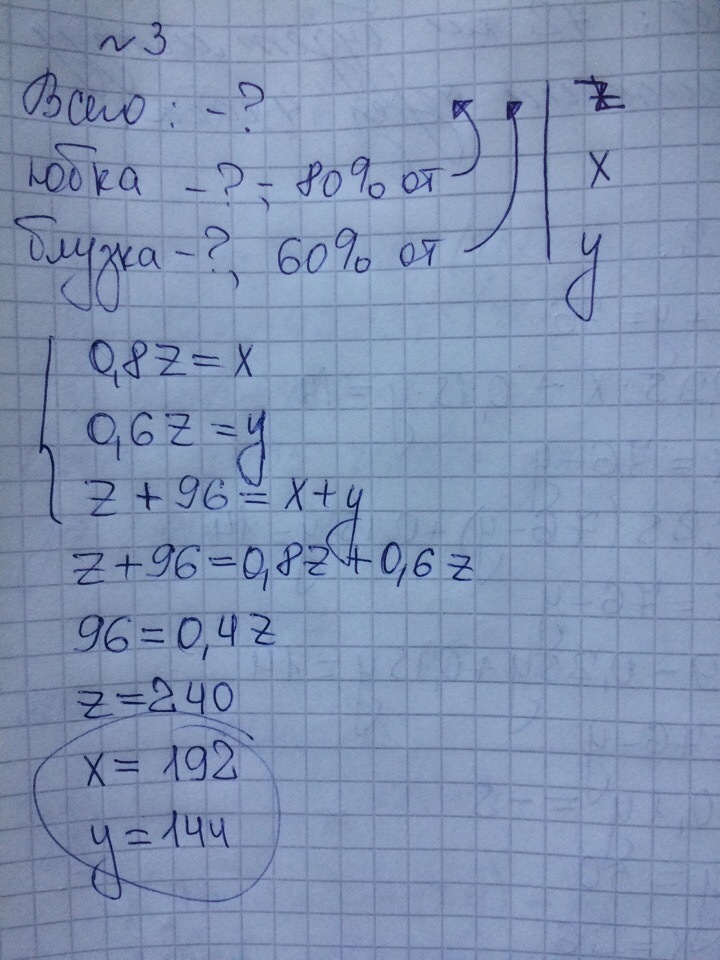 ~ 3
Всего : - ?
z
юбка - ? ; 80% от
x
блузка - ?, 60% от
y
0,8z = x
0,6z = y
z + 96 = x + y
z + 96 = 0,8z + 0,6z
96 = 0,4z
z = 240
x = 192
y = 144